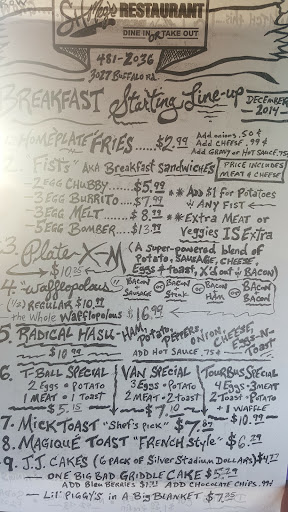 RESTAURANT
DINE IN OR TAKE OUT
481-2036
3027 BUFFALO RD.
BREAKFAST Starting Line-up DECEMBER 2014
1. HOMEPLATE FRIES.....$2.99 Add onions .50¢
Add CHEESE .99¢
Add GRAVY or HOT SAUCE .75¢
2. "Fists" AKA Breakfast Sandwiches PRICE INCLUDES MEAT & CHEESE
- 2 EGG CHUBBY.....$5.99 ** Add $1 for Potatoes
- 3 EGG BURRITO....$7.99 w/ ANY FIST
- 3 EGG MELT......$8.79 ** Extra MEAT or
- 5 EGG BOMBER...$13.99 Veggies IS Extra
3. Plate-X-M (A Super-powered blend of
Potato, SAUSAGE, CHEESE,
$10.25 Eggs & toast, X'd out w/ BACON)
4. "Wafflopolous" w/ BACON or SAUSAGE or BACON or Steak or BACON or HAM or BACON or BACON
(1/2) REGULAR $10.99
the Whole Wafflopolous $16.99
5. RADICAL HASH - HAM, POTATO, PEPPERS, ONION, CHEESE, EGGS-N-TOAST
$10.99 ADD HOT SAUCE .75¢
6. T-BALL SPECIAL
2 Eggs • POTATO
1 MEAT • 1 Toast
$5.15
VAN SPECIAL
3 Eggs • POTATO
2 MEAT • 2 TOAST
$7.10
TOUR BUS SPECIAL
4 Eggs • 3 MEAT
2 Toast • POTATO
+ 1 WAFFLE
$10.99
7. MICKTOAST "Shef's Pick" $7.89
8. MAGIQUE TOAST "FRENCH Style" $6.29
9. J.J. CAKES (6 PACK OF Silver Stadium DOLLARS) $4.77
- ONE BIG BAD GRIDDLE CAKE $5.29
ADD Bleu BERRIES ADD CHOCOLATE CHIPS .99
- Lil' PIGGY'S in A Big BLANKET $7.35